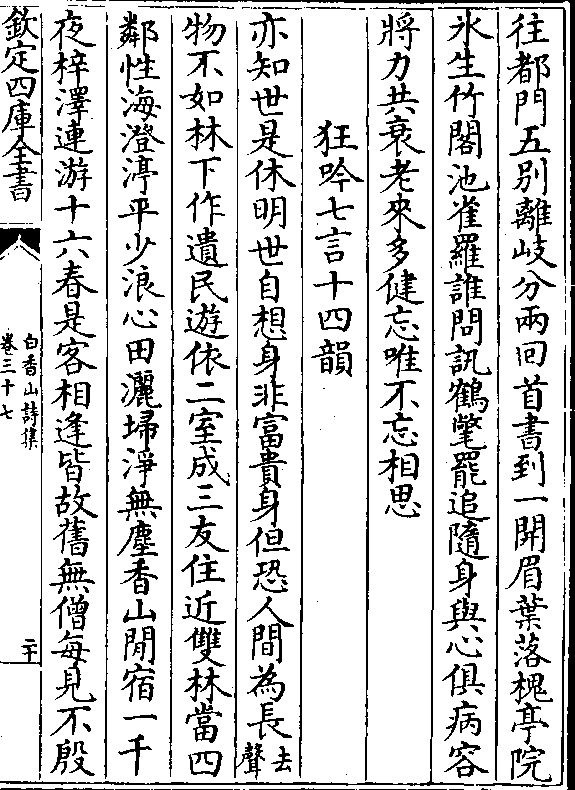 往都門五別離岐分兩回首書到一開眉葉落槐亭院
氷生竹閣池雀羅誰問訊鶴氅罷追隨身與心俱病容
將力共衰老來多健忘唯不忘相思
狂吟七言十四韻
亦知世是休明世自想身非富貴身但恐人間為長去聲
物不如林下作遺民遊依二室成三友住近雙林當四
鄰性海澄渟平少浪心田灑埽淨無塵香山閒宿一千
夜梓澤連游十六春是客相逢皆故舊無僧每見不殷
欽定四庫全書
白香山詩集
卷三十七
二十